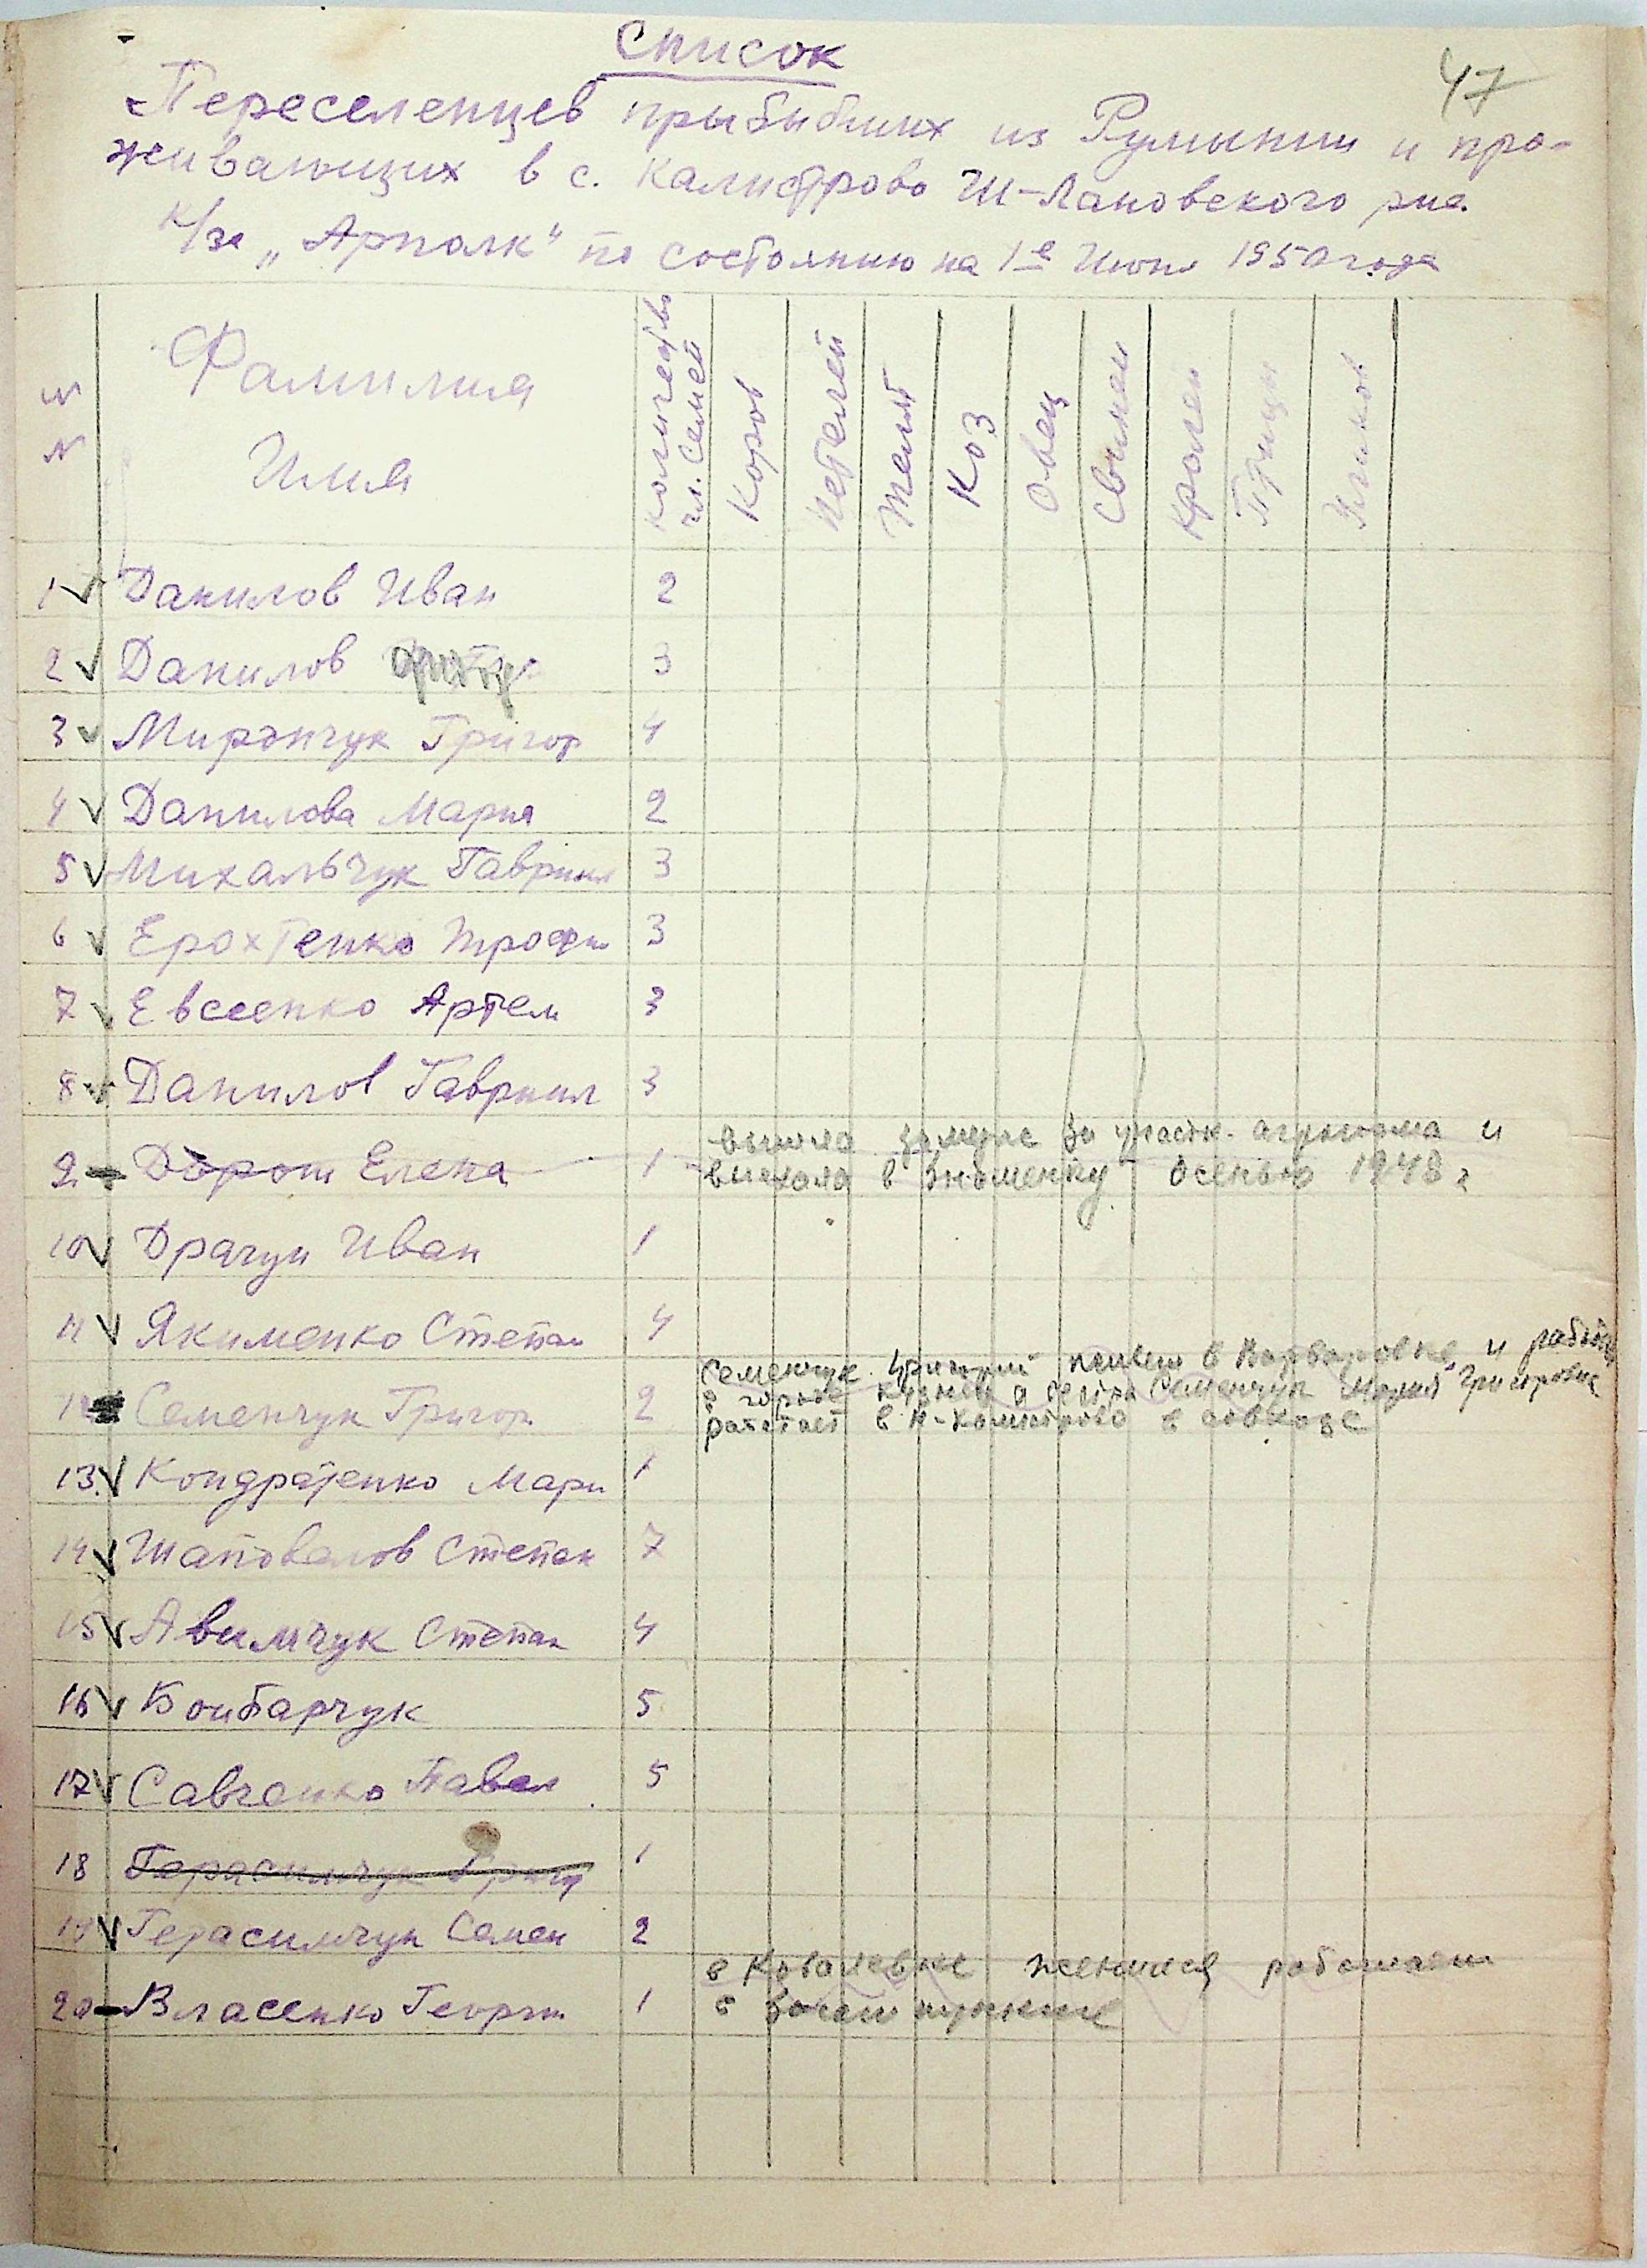 47
Список
Переселенцев прыбывших из Румынии и про-
живающих в с. Калистрово Ш-Лановского р-на
К/за „Арполк“ по состоянию на 1е Июня 1950 года
N N Фамилия Имя количество чл. семей Коров Нетелей Телят Коз Овец Свиней Кролей Птицы
1 Данилов Иван 2
2 Данилов 3
3 Миранчук Григор 4
4 Данилова Мария 2
5 Михальчук Гавриил 3
6 Ерохтенко Трофим 3
7 Евсеенко Артем 3
8 Данилов Гавриил 3
вышла замуж за участк. агронома и
9 Дорош Елена 1 выехала в Знаменку осенью 1948 г
10 Драгун Иван 1
11 Якименко Степан 4
Семенчук Григорий живет в Варваровке и
в городе а сестра Семенчук Мария Григоровна
12 Семенчук Григор 2 работает в Н-Калистрово в совхозе
13 Кондратенко Мари 1
14 Шаповалов Степан 7
15 Авимчук Степан 4
16 Бонбарчук 5
17 Савченко Павел 5
18 Герасимчук Григ 1
19 Герасимчук Семен 2
в Ковалевке женился работает
20 Власенко Георги 1 в пункте